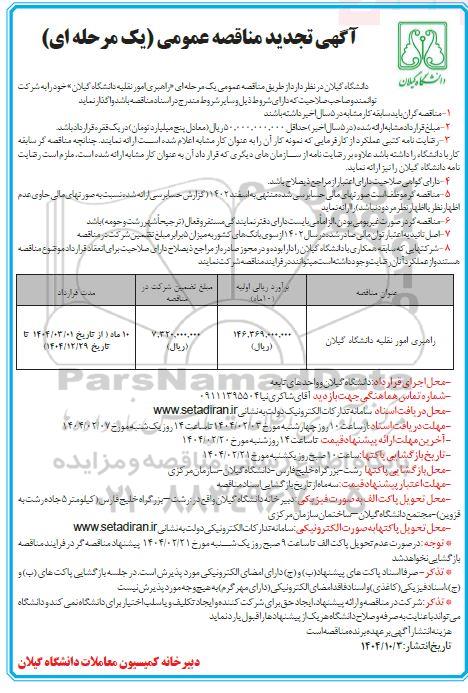 آگهی تجدید مناقصه عمومی (یک مرحله ای)
دانشگاه گیلان
دانشگاه گیلان در نظر دارد از طریق مناقصه عمومی یک مرحله ای «راهبری امور نقلیه دانشگاه گیلان» خود را به شرکت
توانمند و صاحب صلاحیت که دارای شروط ذیل و سایر شروط مندرج در اسناد مناقصه باشد واگذار نماید
۱- مناقصه گران باید سابقه کار مشابه در ۵ سال اخیر داشته باشند
۲- مبلغ قرارداد مشابه ارائه شده (در ۵ سال اخیر) حداقل ۵۰,۰۰۰,۰۰۰,۰۰۰ ریال (معادل پنج میلیارد تومان) در یک فقره قرارداد باشد
۳- رضایت نامه کتبی عملکرد از کارفرمایی که نمونه کار آن را به عنوان کار مشابه اعلام شده است را ارائه نمایند. چنانچه مناقصه گر سابقه
کار با دانشگاه را داشته باشد علاوه بر رضایت نامه از سازمان های دیگری که قرارداد آن به عنوان کار مشابه ارائه شده است، ملزم است رضایت
نامه دانشگاه گیلان را نیز ارائه نماید.
۴- دارای گواهی صلاحیت دارای اعتبار از مراجع ذیصلاح باشد.
۵- مناقصه گر موظف است صورتهای مالی حسابرسی شده منتهی به اسفند ۱۴۰۲ (گزارش حسابرسی ارائه شده نسبت به صورتهای مالی حاوی عدم
اظهار نظر یا اظهار نظر مردود نباشد) را ارائه نماید
۶- مناقصه گر در صورت غیربومی بودن، الزاما می بایست دارای دفتر نمایندگی مستقر و فعال (ترجیحا شهر رشت و حومه) باشد
۷- اصل تائیدیه اعتبار توان مالی صادر شده در سال ۱۴۰۲ از سوی بانک های کشور به میزان ۵ برابر مبلغ تضمین شرکت در مناقصه
۸- شرکتهایی که سابقه همکاری با دانشگاه گیلان را دارا بوده و در مجوز صادره از مراجع ذیصلاح دارای صلاحیت برای انعقاد قرارداد موضوع مناقصه
هستند و از عملکرد آنان رضایت وجود داشته است میتوانند در فرایند مناقصه شرکت نمایند
عنوان مناقصه
برآورد ریالی اولیه (۱۰ماه)
مبلغ تضمین شرکت در مناقصه
مدت قرارداد
راهبری امور نقلیه دانشگاه گیلان
۱۴۶,۳۶۹,۰۰۰,۰۰۰ (ریال)
۷,۳۲۰,۰۰۰,۰۰۰ (ریال)
۱۰ ماه ( از تاریخ ۱۴۰۴/۰۳/۰۱ تا تاریخ ۱۴۰۴/۱۲/۲۹)
ParsNamadData
-محل اجرای قرارداد: دانشگاه گیلان و واحدهای تابعه
-شماره تماس هماهنگی جهت بازدید آقای شاکری نیا ۰۹۱۱۱۳۹۵۵۰۴
-محل دریافت اسناد: سامانه تدارکات الکترونیک دولت به نشانی www.setadiran.ir
-مهلت دریافت اسناد: از ساعت ۱۰ روز چهارشنبه مورخ ۱۴۰۴/۰۲/۰۳ تا ساعت ۱۴ روز یکشنبه مورخ ۱۴۰۴/۰۲/۰۷
-آخرین مهلت ارائه پیشنهاد قیمت: تا ساعت ۱۴ روز شنبه مورخ ۱۴۰۴/۰۲/۲۰
-تاریخ بازگشایی پاکتها: ساعت ۱۰ صبح روز یکشنبه مورخ ۱۴۰۴/۰۲/۲۱
-محل بازگشایی پاکتها: رشت - بزرگراه خلیج فارس - دانشگاه گیلان - سازمان مرکزی
-مهلت اعتبار پیشنهاد قیمت: سه ماه از تاریخ بازگشایی اسناد مناقصه
-محل تحویل پاکت الف به صورت فیزیکی: دبیرخانه دانشگاه گیلان واقع در: رشت - بزرگراه خلیج فارس (کیلومتر ۵ جاده رشت به
قزوین) - مجتمع دانشگاه گیلان - ساختمان سازمان مرکزی
-محل تحویل پاکتها به صورت الکترونیکی: سامانه تدارکات الکترونیکی دولت به نشانی www.setadiran.ir
* توجه: در صورت عدم تحویل پاکت الف تا ساعت ۹ صبح روز یک شنبه مورخ ۱۴۰۴/۰۲/۲۱ پیشنهاد مناقصه گر در فرایند مناقصه
بازگشایی نخواهد شد
* تذکر - صرفا اسناد پاکت های پیشنهاد (ب) و (ج) دارای امضای الکترونیکی مورد پذیرش است. در جلسه بازگشایی پاکت های (ب) و
(ج)، اسناد فیزیکی (کاغذی) و اسناد فاقد امضای الکترونیکی (دارای مهر گرم) به هیچ وجه مورد پذیرش نیست
* تذکر: شرکت در مناقصه و ارائه پیشنهاد، ایجاد حق برای شرکت کننده و ایجاد تکلیف و یا سلب اختیار برای دانشگاه نمی کند و دانشگاه
می تواند با عنایت به صرفه و صلاح دانشگاه هر یک از پیشنهادها را قبول یا رد نماید
هزینه انتشار آگهی بر عهده برنده مناقصه است
تاریخ انتشار: ۱۴۰۴/۱۰/۳
دبیرخانه کمیسیون معاملات دانشگاه گیلان